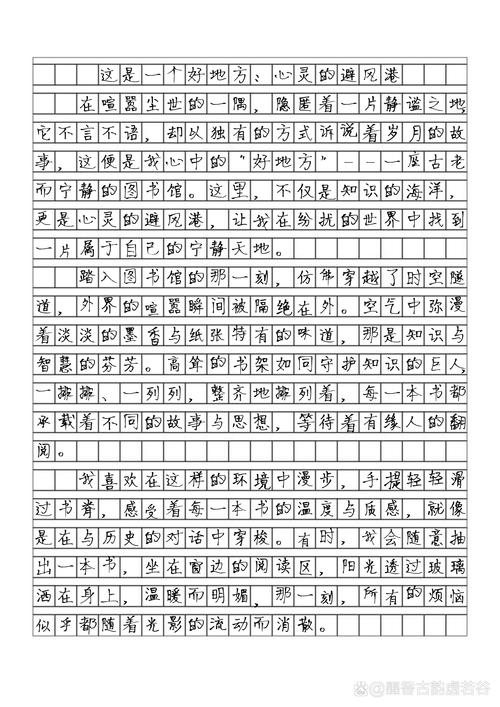 这是一个好地方：心灵的避风港
在喧嚣尘世的一隅，隐匿着一片静谧之地，
它不言不语，却以独有的方式诉说着岁月的故
事，这便是我心中的“好地方”--一座古老
而宁静的图书馆。这里，不仅是知识的海洋，
更是心灵的避风港，让我在纷扰的世界中找到
一片属于自己的宁静天地。
踏入图书馆的那一刻，仿佛穿越了时空隧
道，外界的喧嚣瞬间被隔绝在外。空气中弥漫
着淡淡的墨香与纸张特有的味道，那是知识与
智慧的芬芳。高耸的书架如同守护知识的巨人，
一排排、一列列，整齐地排列着，每一本书都
承载着不同的故事与思想，等待着有缘人的翻
阅。
我喜欢在这样的环境中漫步，手提轻轻滑
过书脊，感受着每一本书的温度与质感，就像
是在与历史的对话中穿梭。有时，我会随意抽
出一本书，坐在窗边的阅读区，阳光透过玻璃
洒在身上，温暖而明媚，那一刻，所有的烦恼
似乎都随着光影的流动而消散。